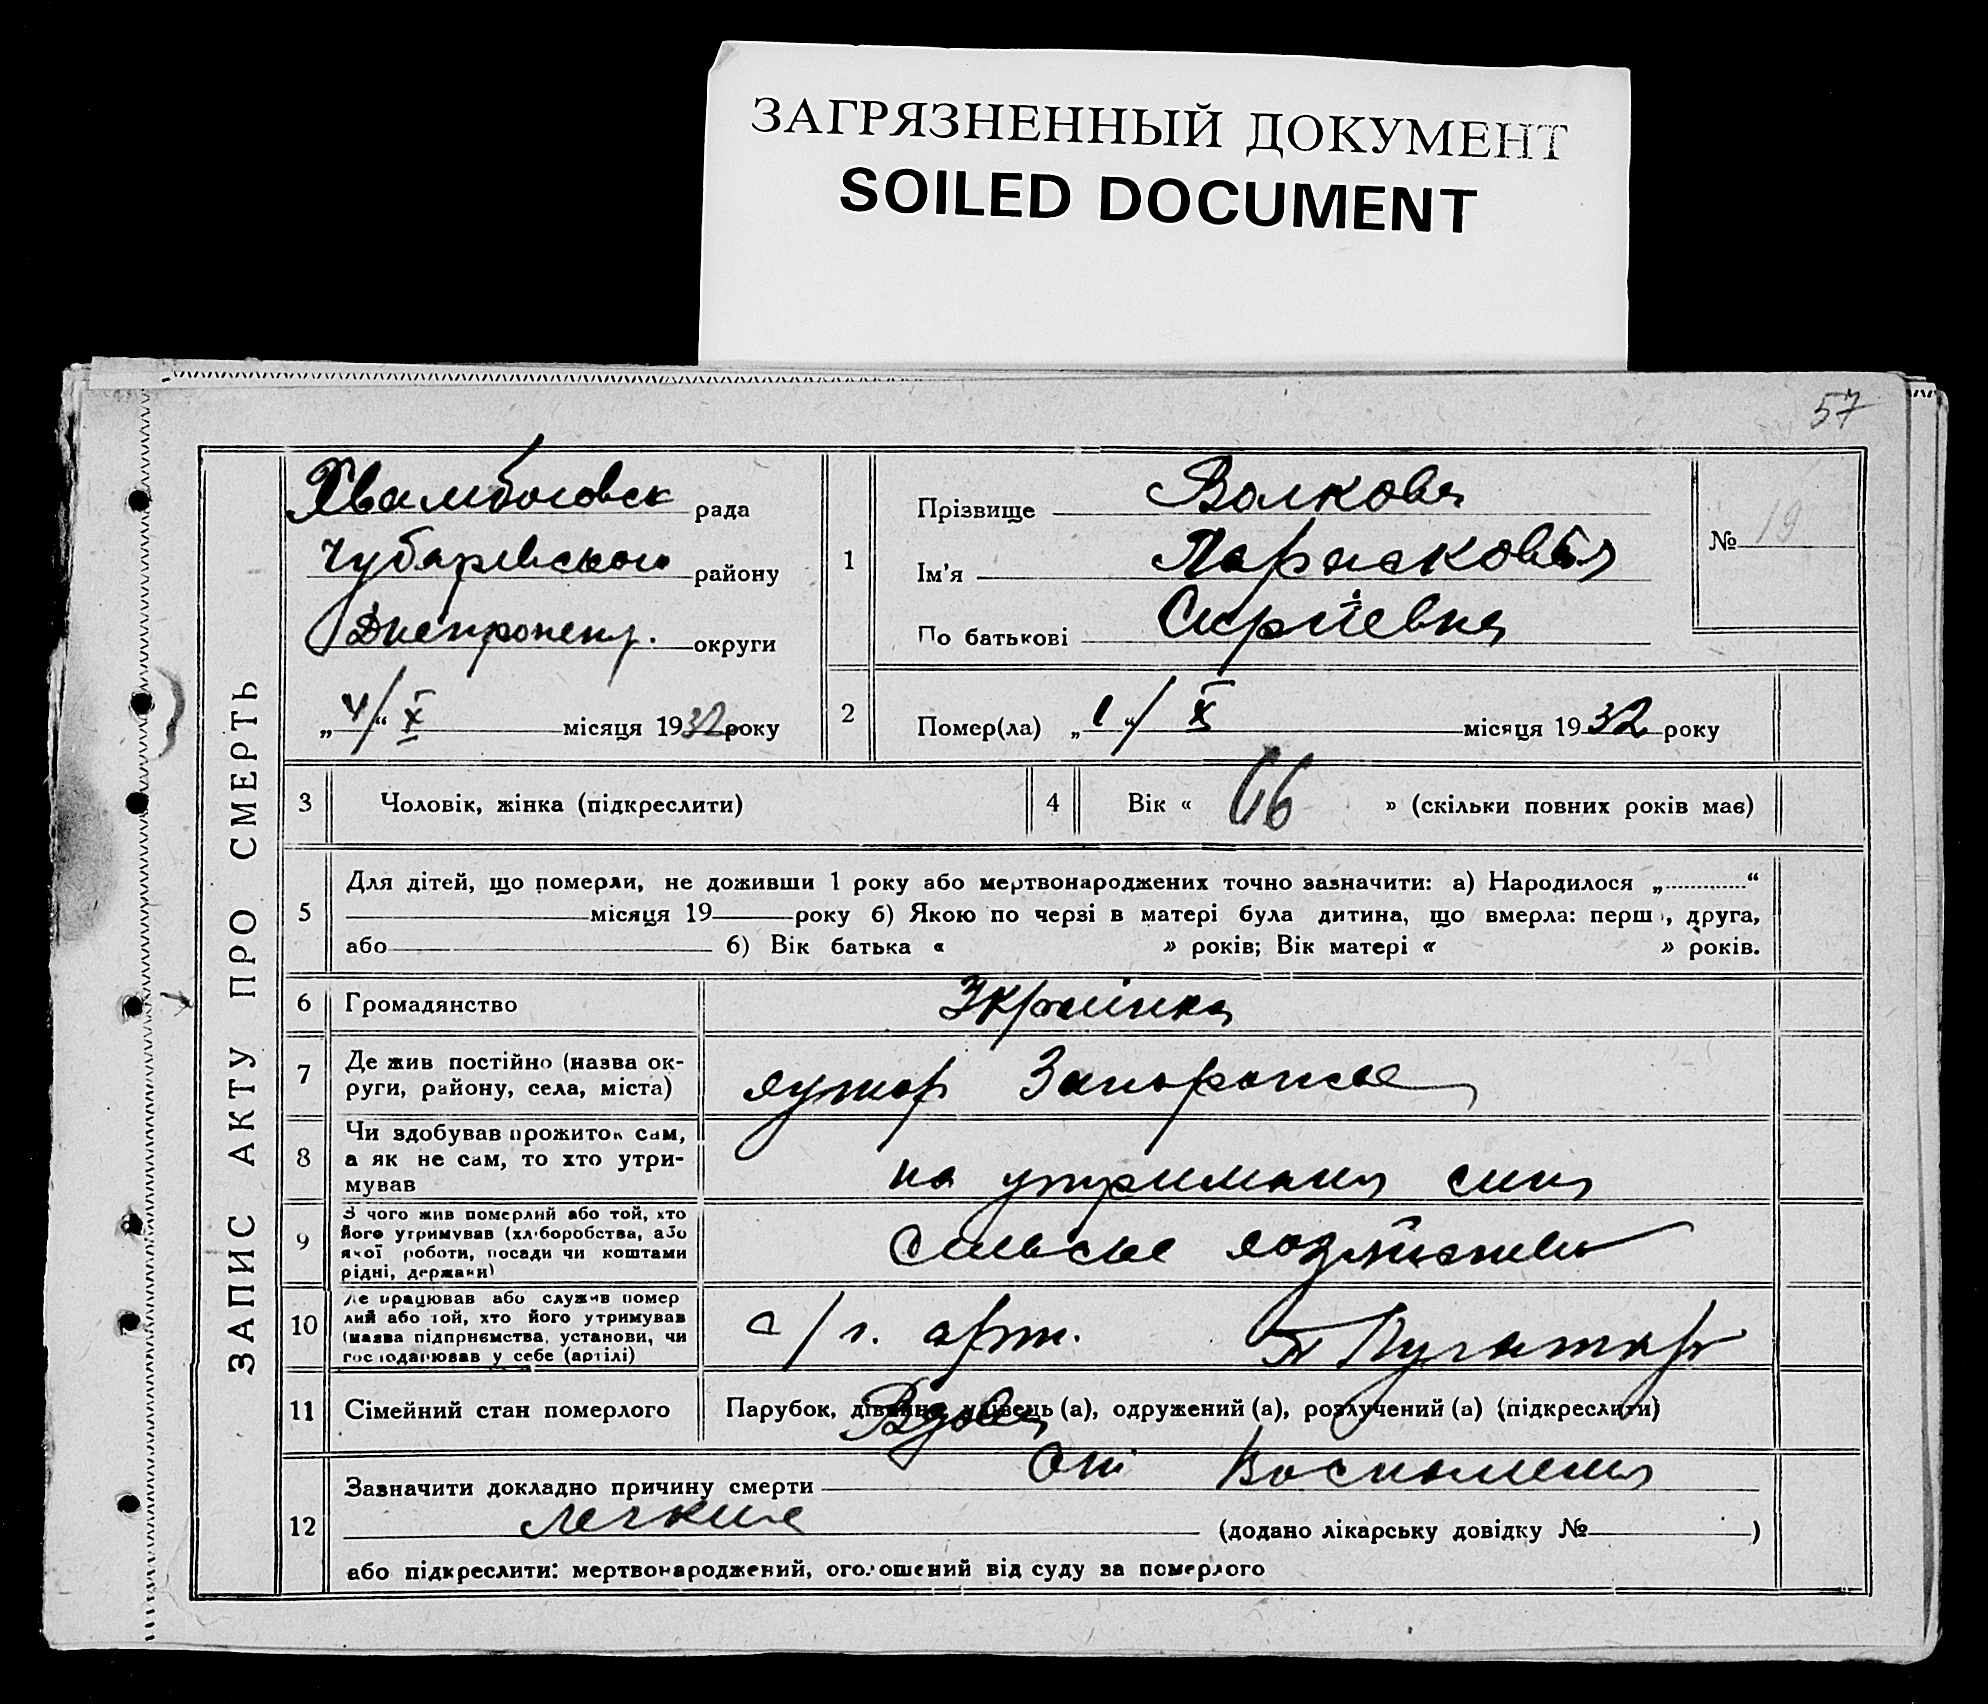 ЗАГРЯЗНЕННЫЙ ДОКУМЕНТ
SOILED DOCUMENT
57
ЗАПИС АКТУ ПРО СМЕРТЬ
рада
Чубаревського району
Днепропетр. округи
„4/“ X місяця 1932 року
1
Прізвище Волкова
Ім'я Парасковья
По батькові Сиргіевна
№ 19
2
Помер(ла) „1“/ X місяця 1932 року
3 Чоловік, жінка (підкреслити)
4 Вік « 66 » (скільки повних років має)
5
Для дітей, що померли, не доживши 1 року або мертвонароджених точно зазначити: а) Народилося „ “
місяця 19 року б) Якою по черзі в матері була дитина, що вмерла: перш , друга,
або б) Вік батька « » років; Вік матері « » років.
6 Громадянство Українка
7
Де жив постійно (назва ок-
руги, району, села, міста)
хутор Запорожье
8
Чи здобував прожиток сам,
а як не сам, то хто утри-
мував
на утриманя сина
9
З чого жив померлий або той, хто
його утримував (хліборобства, або
якої роботи, посади чи коштами
рідні, держави)
Сильске хозяйство
10
Де працював або служив помер
лий або той, хто його утримував
(назва підприємства, установи, чи
господарював у себе (артілі)
с/г. арт.
11 Сімейний стан померлого
Парубок, дівчина, удівець (а), одружений (а), розлучений (а) (підкреслити)
Вдова
12
Зазначити докладно причину смерти От Воспаления
легких (додано лікарську довідку № )
або підкреслити: мертвонароджений, оголошений від суду за померлого